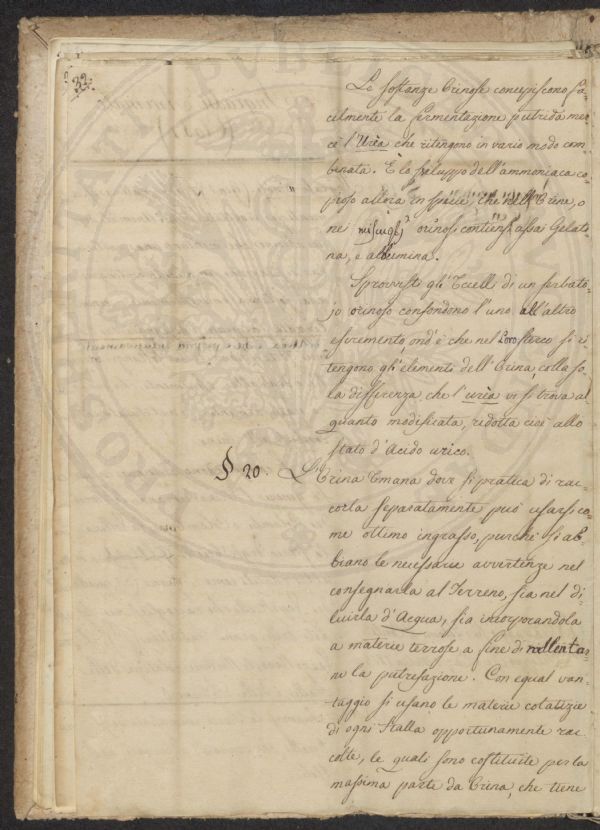 32.
Le sostanze Orinose concepiscono fa-
cilmente la fermentazione putrida mer-
cè l'Urèa che ritengono in vario modo com-
binata. È lo sviluppo dell'ammoniaca co-
pioso allora in specie, che nell'Orine, o
nei miscugli orinosi contiensi assai Gelati-
na, e albumina.
Sprovvisti gl'Uccelli di un serbato-
jo orinoso confondono l'uno all'altro
escremento, ond'è che nel Loro sterco si ri-
tengono gl'elementi dell'Orina, colla so-
la differenza che l'urèa vi si trova al-
quanto modificata, ridotta cioè allo
stato d'Acido urico.
§ 20. L'Orina Umana dove si pratica di rac-
corla separatamente può usarsi co-
me ottimo ingrasso, purchè si ab-
biano le necessarie avvertenze nel
consegnarla al Terreno, sia nel di-
luirla d'Acqua, sia incorporandola
a materie terrose a fine di rallenta-
re la putrefazione. Con egual van-
taggio si usano le materie colatizie
di ogni Stalla opportunamente rac-
colte, le quali sono costituite per la
massima parte da Orina, che tiene